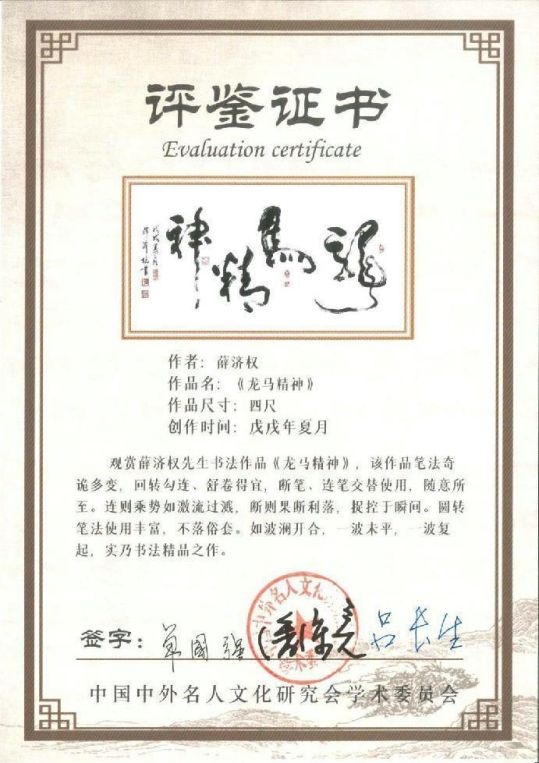 评鉴证书
Evaluation certificate
龍馬精神
作者：薛济权
作品名：《龙马精神》
作品尺寸：四尺
创作时间：戊戌年夏月
观赏薛济权先生书法作品《龙马精神》，该作品笔法奇
诡多变，回转勾连、舒卷得宜，断笔、连笔交替使用，随意所
至。连则乘势如激流过渡，断则果断利落，捉控于瞬间。圆转
笔法使用丰富，不落俗套。如波澜开合，一波未平，一波复
起，实乃书法精品之作。
中外名人文化
签字：单国强 吕长生
中国中外名人文化研究会学术委员会